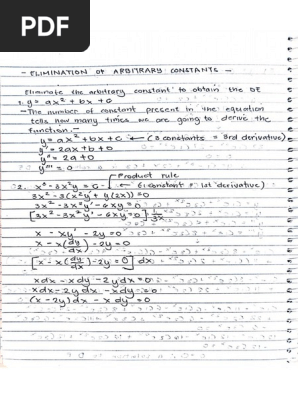 PDF
- ELIMINATION OF ARBITRARY CONSTANTS -
Eliminate the arbitrary constant to obtain the DE
1. y = ax² + bx + c
- The number of constant present in the equation
tells how many times we are going to derive the
function. -
y = ax² + bx + c ← (3 constants = 3rd derivative)
y' = 2ax + b + 0
y'' = 2a + 0
y''' = 0
Product rule
2. x³ - 3x²y = c ← (1 constant = 1st derivative)
3x² - 3(x²y' + y(2x)) = 0
3x² - 3x²y' - 6xy = 0
[3x² - 3x²y' - 6xy = 0] 3x
x - xy' - 2y = 0
x - x(dy/dx) - 2y = 0
[x - x(dy/dx) - 2y = 0] dx
xdx - xdy - 2ydx = 0
xdx - 2ydx - xdy = 0
(x - 2y)dx - xdy = 0